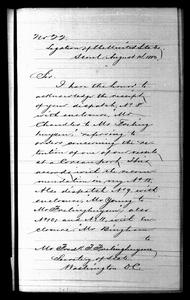 No 22
Legation of the United States,
Seoul August 1st 1883,
Sir:
I have the honor to
acknowledge the receipt
of your dispatch, No 8
with enclosure, Mr
Chandler to Mr Freling-
huysen, referring to
orders concerning the re-
tention of one of our vessels
at a Corean port. This
accorded with the recom-
mendation in my No 11.
Also dispatch No 9, with
enclosure, Mr Young to
Mr Frelinghuysen, also
No 10, and No 11, with en-
closure, Mr Bingham
to
Mr Fredk T. Frelinghuysen,
Secretary of State,
Washington D.C.